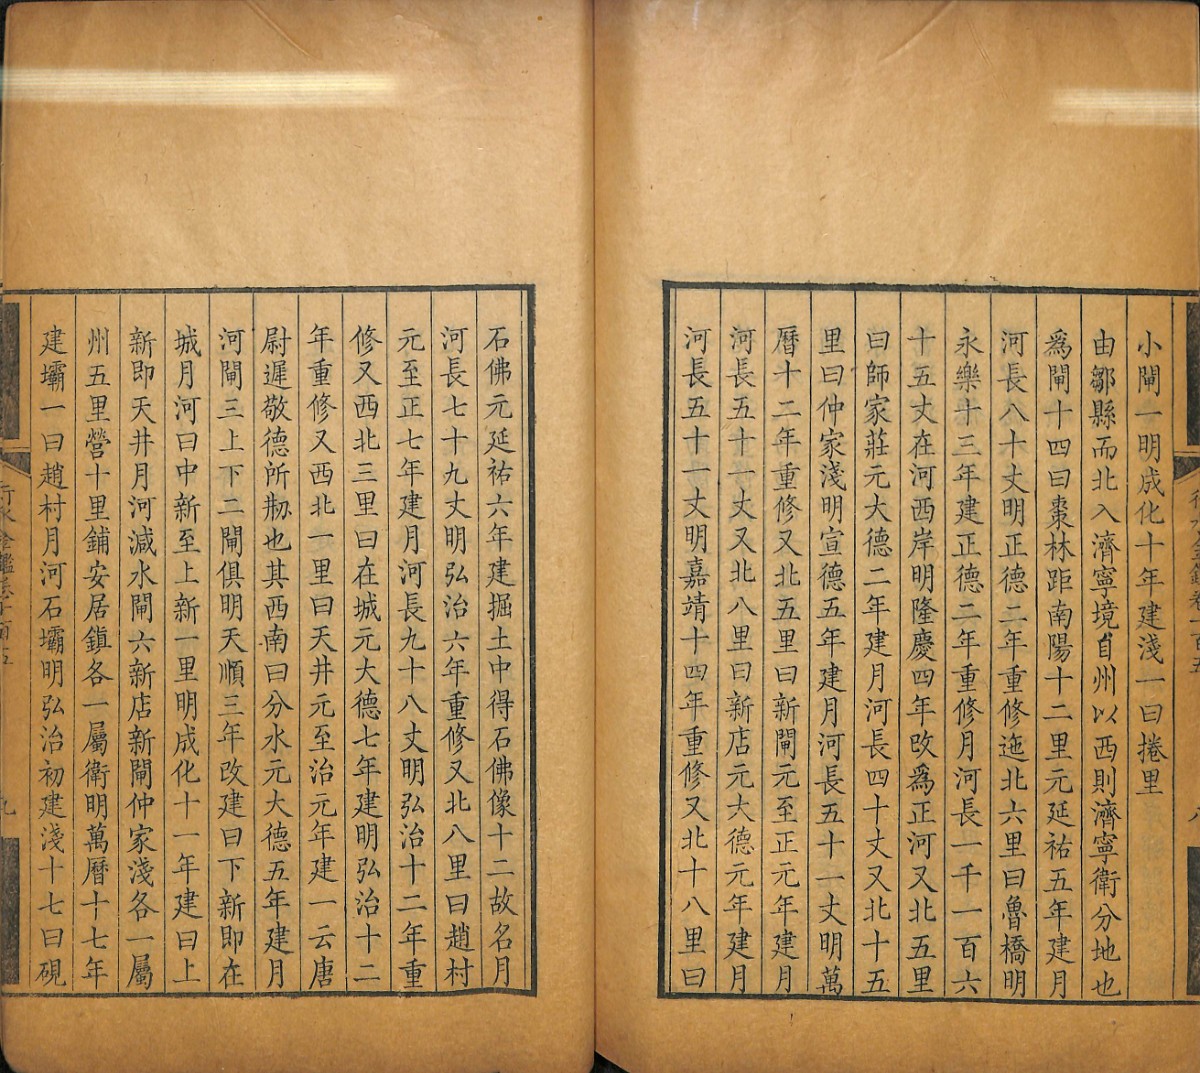 小閘一明成化十年建淺一曰捲里
由鄒縣而北入濟寧境自州以西則濟寧衛分地也
爲閘十四曰棗林距南陽十二里元延祐五年建月
河長八十丈明正德二年重修迤北六里曰魯橋明
永樂十三年建正德二年重修月河長一千一百六
十五丈在河西岸明隆慶四年改爲正河又北五里
曰師家莊元大德二年建月河長四十丈又北十五
里曰仲家淺明宣德五年建月河長五十一丈明萬
曆十二年重修又北五里曰新閘元至正元年建月
河長五十一丈又北八里曰新店元大德元年建月
河長五十一丈明嘉靖十四年重修又北十八里曰
石佛元延祐六年建掘土中得石佛像十二故名月
河長七十九丈明弘治六年重修又北八里曰趙村
元至正七年建月河長九十八丈明弘治十二年重
修又西北三里曰在城元大德七年建明弘治十二
年重修又西北一里曰天井元至治元年建一云唐
尉遲敬德所剏也其西南曰分水元大德五年建月
河閘三上下二閘俱明天順三年改建曰下新即在
城月河曰中新至上新一里明成化十一年建曰上
新即天井月河減水閘六新店新閘仲家淺各一屬
州五里營十里鋪安居鎮各一屬衛明萬曆十七年
建壩一曰趙村月河石壩明弘治初建淺十七曰硯